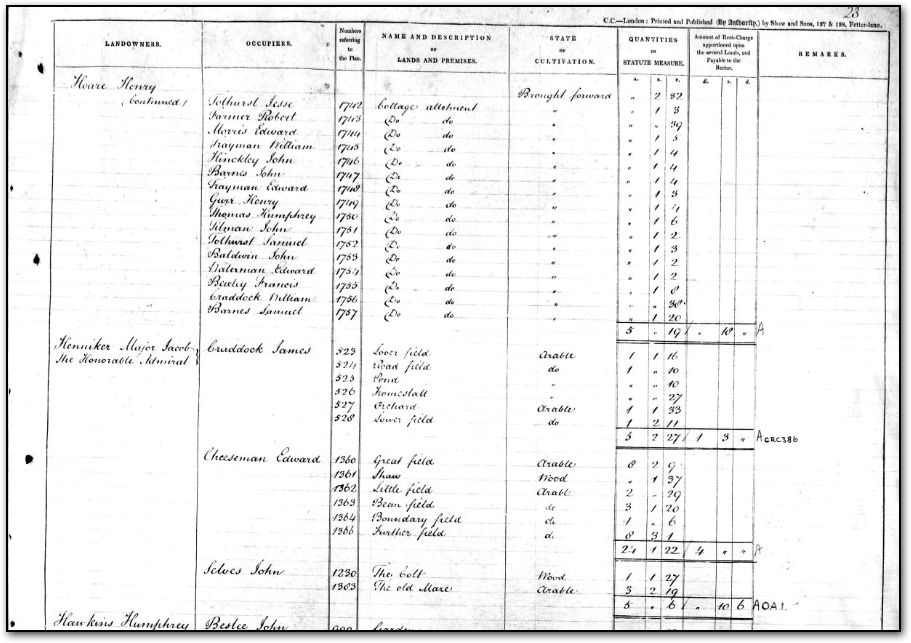 23
C.C.—London: Printed and Published (By Authority,) by Shaw and Sons, 137 & 138, Fetter-lane.
LANDOWNERS. OCCUPIERS. Numbers referring to the Plan. NAME AND DESCRIPTION OF LANDS AND PREMISES. STATE OF CULTIVATION. QUANTITIES IN STATUTE MEASURE. Amount of Rent-Charge apportioned upon the several Lands, and Payable to the Rector. REMARKS.
a. r. p. £. s. d.
Hoare Henry
(Continued) Brought forward " 2 32
Tolhurst Jesse 1742 Cottage allotment " " 1 3
Farmer Robert 1743 Do do " " " 39
Morris Edward 1744 Do do " " 1 5
Trayman William 1745 Do do " " 1 4
Hinckley John 1746 Do do " " 1 4
Barnes John 1747 Do do " " 1 4
Trayman Edward 1748 Do do " " 1 3
Gurr Henry 1749 Do do " " 1 4
Thomas Humphrey 1750 Do do " " 1 6
Tilman John 1751 Do do " " 1 2
Tolhurst Samuel 1752 Do do " " 1 3
Baldwin John 1753 Do do " " 1 2
Waterman Edward 1754 Do do " " 1 2
Bewley Francis 1755 Do do " " 1 8
Craddock William 1756 Do do " " " 38
Barnes Samuel 1757 Do do " " 1 20
5 " 19 " 18 " A
Henniker Major Jacob Craddock James 523 Lower field Arable 1 1 16
The Honorable Admiral 524 Road field do 1 " 10
525 Pond " " " 10
526 Homestall " " " 27
527 Orchard Arable 1 1 33
528 Lower field do 1 2 11
5 2 27 1 3 " A CRC386
Cheeseman Edward 1360 Great field Arable 8 2 9
1361 Shaw Wood " 1 37
1362 Little field Arable 2 " 29
1363 Bean field do 3 1 20
1364 Boundary field do 1 " 6
1366 Further field do 8 3 1
24 1 22 4 " " A
Selves John 1230 The Colt Wood 1 1 27
1383 The old Mare Arable 3 2 19
5 " 6 " 10 6 A OA1.
Hawkins Humphrey Beslee John